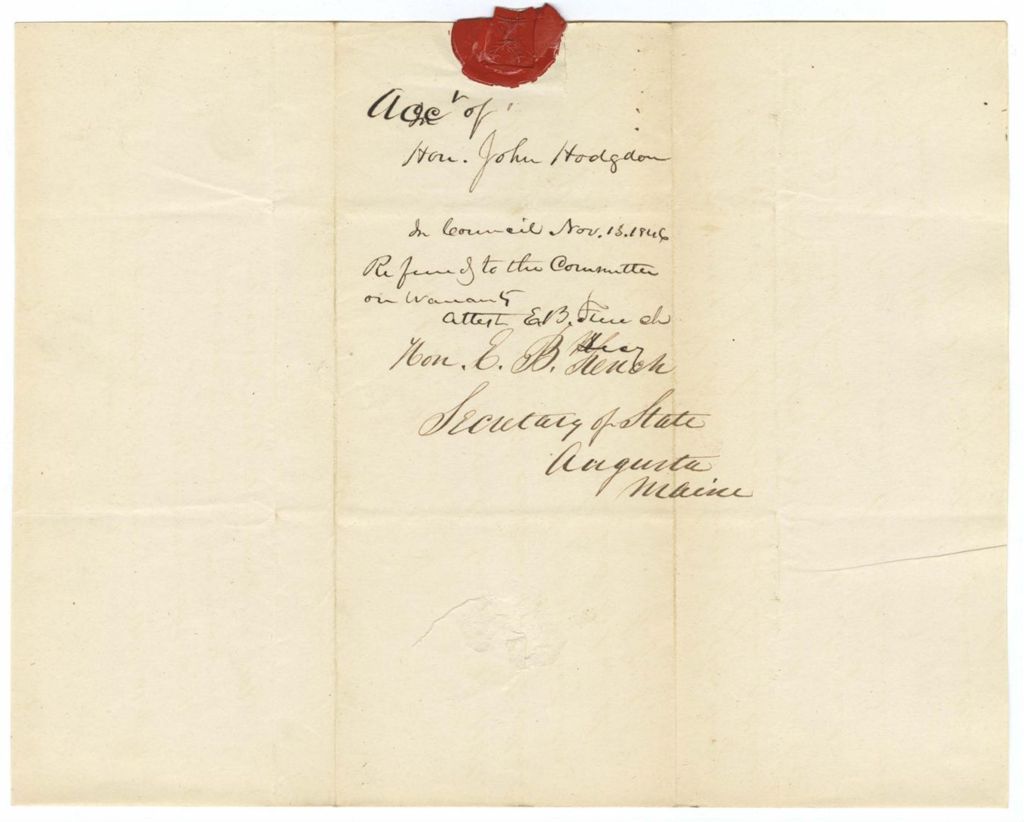 Acct of
Hon. John Hodgdon
In Council Nov. 13. 1846
Referred to the Committee
on Warrants
Attest E.B. French
Hon. E. B. French
Secretary of State
Augusta
Maine